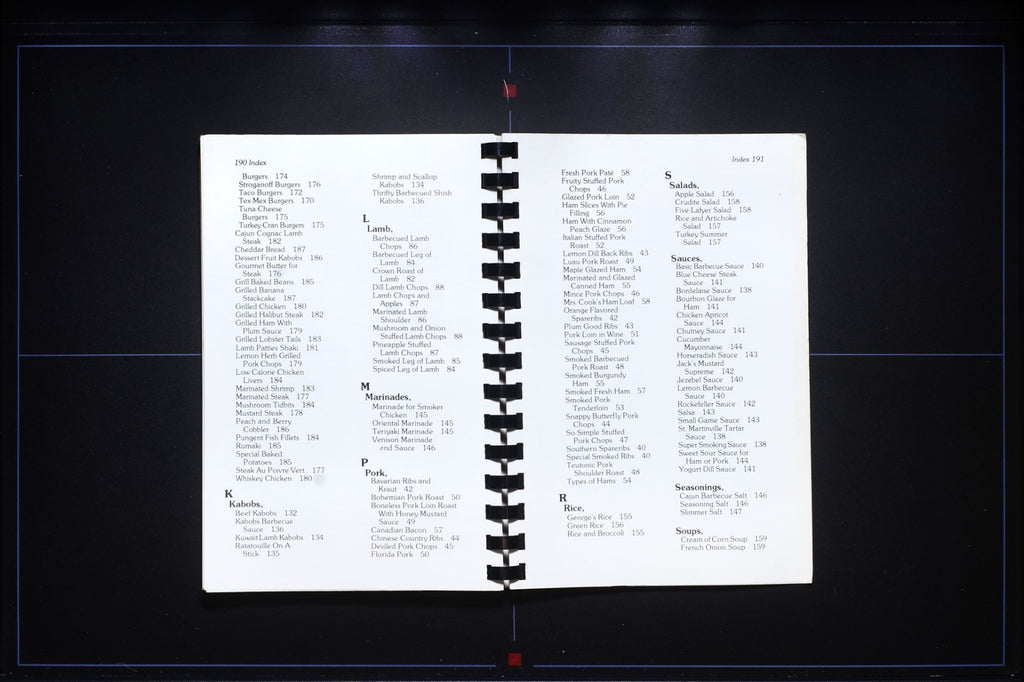 190 Index
Burgers 174
Stroganoff Burgers 176
Taco Burgers 172
Tex Mex Burgers 170
Tuna-Cheese
Burgers 175
Turkey-Cran Burgers 175
Cajun Cognac Lamb
Steak 182
Cheddar Bread 187
Dessert Fruit Kabobs 186
Gourmet Butter for
Steak 176
Grill Baked Beans 185
Grilled Banana
Stackcake 187
Grilled Chicken 180
Grilled Halibut Steak 182
Grilled Ham With
Plum Sauce 179
Grilled Lobster Tails 183
Lamb Patties Shaki 181
Lemon Herb Grilled
Pork Chops 179
Low Calorie Chicken
Livers 184
Marinated Shrimp 183
Marinated Steak 177
Mushroom Tidbits 184
Mustard Steak 178
Peach and Berry
Cobbler 186
Pungent Fish Fillets 184
Rumaki 185
Special Baked
Potatoes 185
Steak Au Poivre Vert 177
Whiskey Chicken 180
K
Kabobs,
Beef Kabobs 132
Kabobs Barbecue
Sauce 136
Kuwait Lamb Kabobs 134
Ratatouille-On-A
Stick 135
Shrimp and Scallop
Kabobs 134
Thrifty Barbecued Shish
Kabobs 136
L
Lamb,
Barbecued Lamb
Chops 86
Barbecued Leg of
Lamb 84
Crown Roast of
Lamb 82
Dill Lamb Chops 88
Lamb Chops and
Apples 87
Marinated Lamb
Shoulder 86
Mushroom and Onion
Stuffed Lamb Chops 88
Pineapple Stuffed
Lamb Chops 87
Smoked Leg of Lamb 85
Spiced Leg of Lamb 84
M
Marinades,
Marinade for Smoker
Chicken 145
Oriental Marinade 145
Teriyaki Marinade 145
Venison Marinade
and Sauce 146
P
Pork,
Bavarian Ribs and
Kraut 42
Bohemian Pork Roast 50
Boneless Pork Loin Roast
With Honey Mustard
Sauce 49
Canadian Bacon 57
Chinese Country Ribs 44
Deviled Pork Chops 45
Florida Pork 50
Index 191
Fresh Pork Paté 58
Fruity Stuffed Pork
Chops 46
Glazed Pork Loin 52
Ham Slices With Pie
Filling 56
Ham With Cinnamon
Peach Glaze 56
Italian Stuffed Pork
Roast 52
Lemon-Dill Back Ribs 43
Luau Pork Roast 49
Maple Glazed Ham 54
Marinated and Glazed
Canned Ham 55
Mince Pork Chops 46
Mrs. Cook's Ham Loaf 58
Orange Flavored
Spareribs 42
Plum Good Ribs 43
Pork Loin in Wine 51
Sausage Stuffed Pork
Chops 45
Smoked Barbecued
Pork Roast 48
Smoked Burgundy
Ham 55
Smoked Fresh Ham 57
Smoked Pork
Tenderloin 53
Snappy Butterfly Pork
Chops 44
So Simple Stuffed
Pork Chops 47
Southern Spareribs 40
Special Smoked Ribs 40
Teutonic Pork
Shoulder Roast 48
Types of Hams 54
R
Rice,
George's Rice 155
Green Rice 156
Rice and Broccoli 155
S
Salads,
Apple Salad 156
Crudite Salad 158
Five-Layer Salad 158
Rice and Artichoke
Salad 157
Turkey Summer
Salad 157
Sauces,
Basic Barbecue Sauce 140
Blue Cheese Steak
Sauce 141
Bordelaise Sauce 138
Bourbon Glaze for
Ham 141
Chicken-Apricot
Sauce 144
Chutney Sauce 141
Cucumber
Mayonnaise 144
Horseradish Sauce 143
Jack's Mustard
Supreme 142
Jezebel Sauce 140
Lemon Barbecue
Sauce 140
Rockefeller Sauce 142
Salsa 143
Small Game Sauce 143
St. Martinville Tartar
Sauce 138
Super Smoking Sauce 138
Sweet Sour Sauce for
Ham or Pork 144
Yogurt Dill Sauce 141
Seasonings,
Cajun Barbecue Salt 146
Seasoning Salt 146
Slimmer Salt 147
Soups,
Cream of Corn Soup 159
French Onion Soup 159